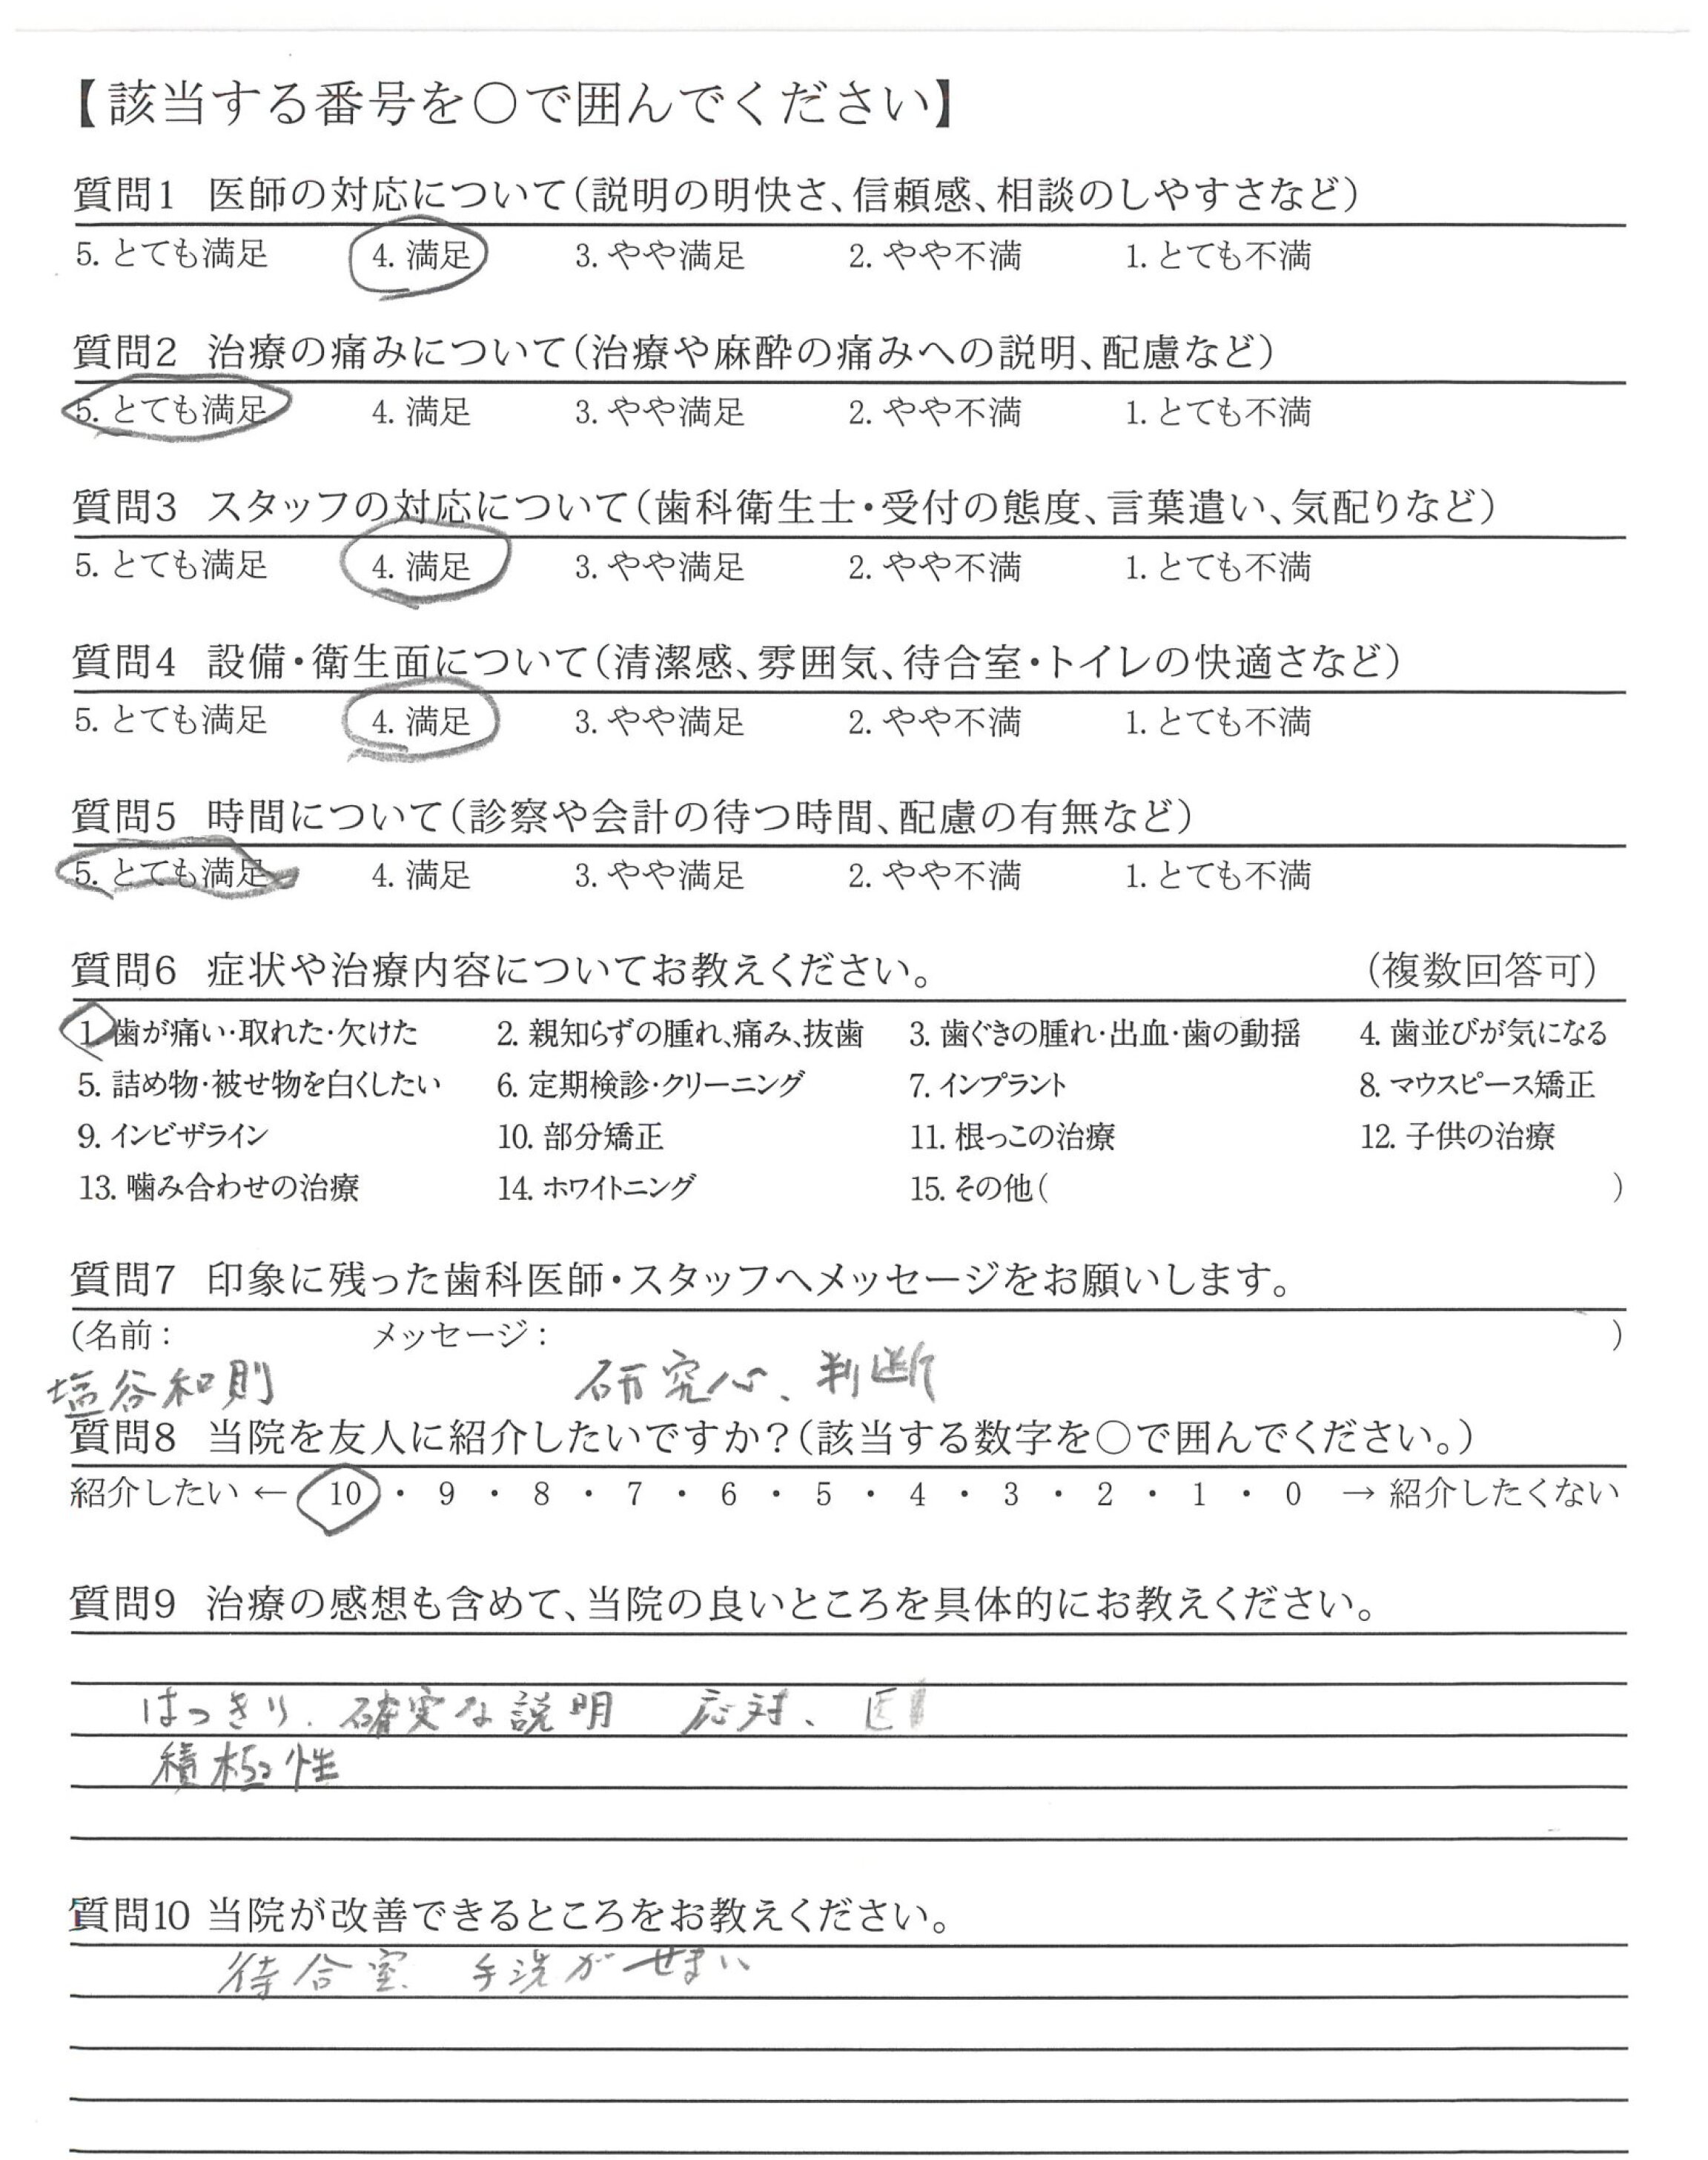 【該当する番号を○で囲んでください】
質問1 医師の対応について(説明の明快さ、信頼感、相談のしやすさなど)
5. とても満足 4. 満足 3. やや満足 2. やや不満 1. とても不満
質問2 治療の痛みについて(治療や麻酔の痛みへの説明、配慮など)
5. とても満足 4. 満足 3. やや満足 2. やや不満 1. とても不満
質問3 スタッフの対応について(歯科衛生士・受付の態度、言葉遣い、気配りなど)
5. とても満足 4. 満足 3. やや満足 2. やや不満 1. とても不満
質問4 設備・衛生面について(清潔感、雰囲気、待合室・トイレの快適さなど)
5. とても満足 4. 満足 3. やや満足 2. やや不満 1. とても不満
質問5 時間について(診察や会計の待つ時間、配慮の有無など)
5. とても満足 4. 満足 3. やや満足 2. やや不満 1. とても不満
質問6 症状や治療内容についてお教えください。 (複数回答可)
1. 歯が痛い・取れた・欠けた 2. 親知らずの腫れ、痛み、抜歯 3. 歯ぐきの腫れ・出血・歯の動揺 4. 歯並びが気になる
5. 詰め物・被せ物を白くしたい 6. 定期検診・クリーニング 7. インプラント 8. マウスピース矯正
9. インビザライン 10. 部分矯正 11. 根っこの治療 12. 子供の治療
13. 噛み合わせの治療 14. ホワイトニング 15. その他( )
質問7 印象に残った歯科医師・スタッフへメッセージをお願いします。
(名前: メッセージ: )
塩谷和則 研究心、判断
質問8 当院を友人に紹介したいですか?(該当する数字を○で囲んでください。)
紹介したい ← 10 ・ 9 ・ 8 ・ 7 ・ 6 ・ 5 ・ 4 ・ 3 ・ 2 ・ 1 ・ 0 → 紹介したくない
質問9 治療の感想も含めて、当院の良いところを具体的にお教えください。
はっきり、確実な説明 応対、
積極性
質問10 当院が改善できるところをお教えください。
待合室、手洗がせまい